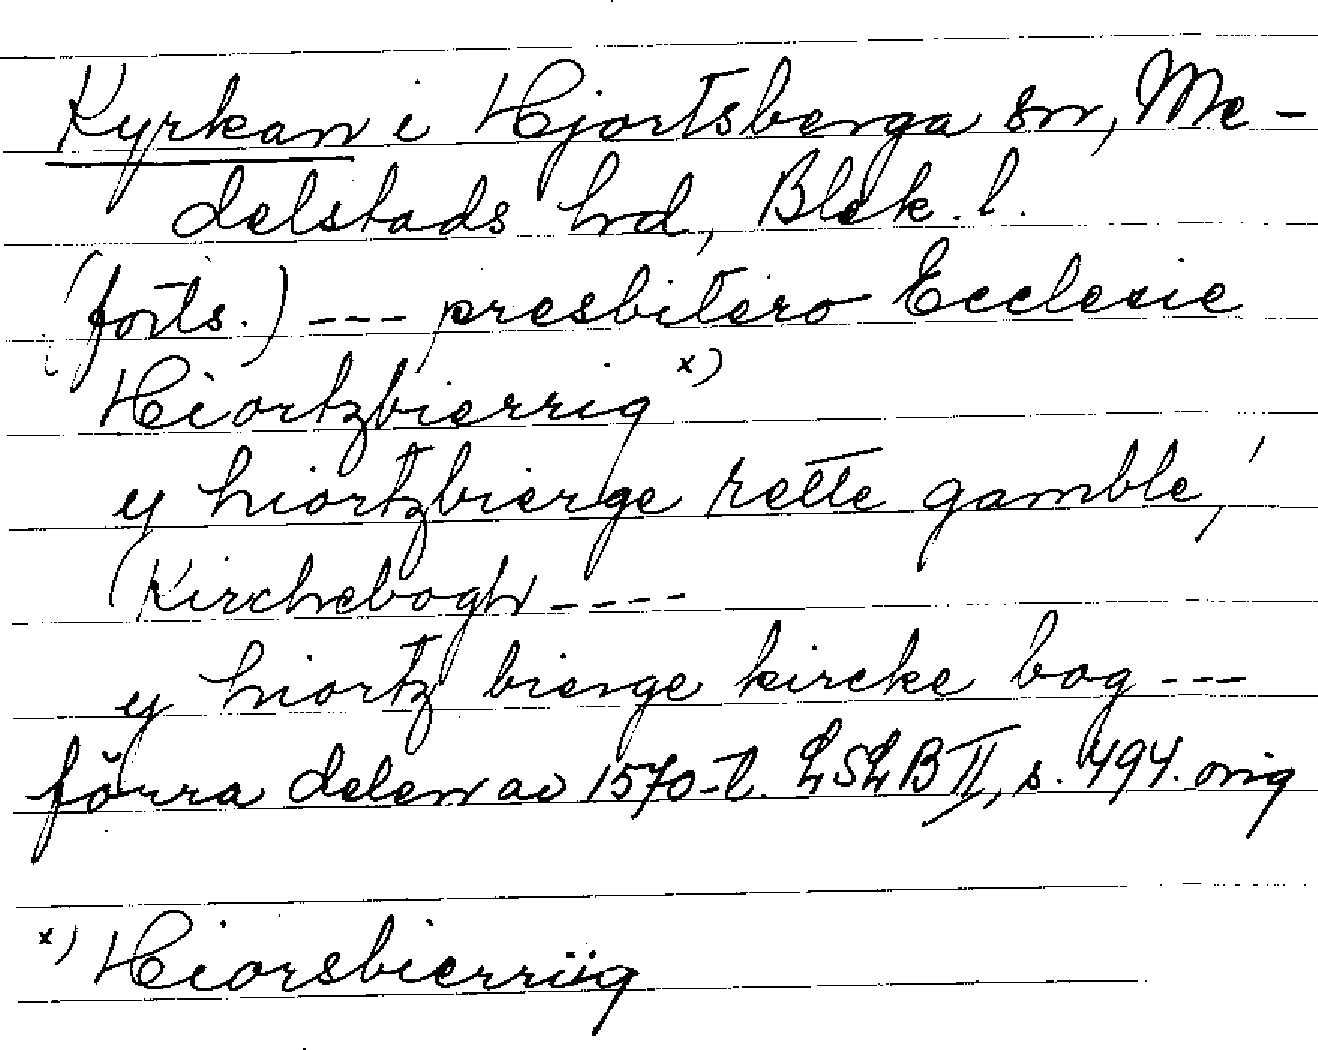 Kyrkan i Hjortsberga sn, Me-
delstads hd, Blek. l.
(forts.) --- presbitero Ecclesie
Hiortzbierrig x)
y hiortzbierge rette gamble,
(Kirchebogh ----
y hiortz bierge kircke bog ---
förra delen av 1570-t. LSLB II, s. 494. orig
x) Hiorsbierriig